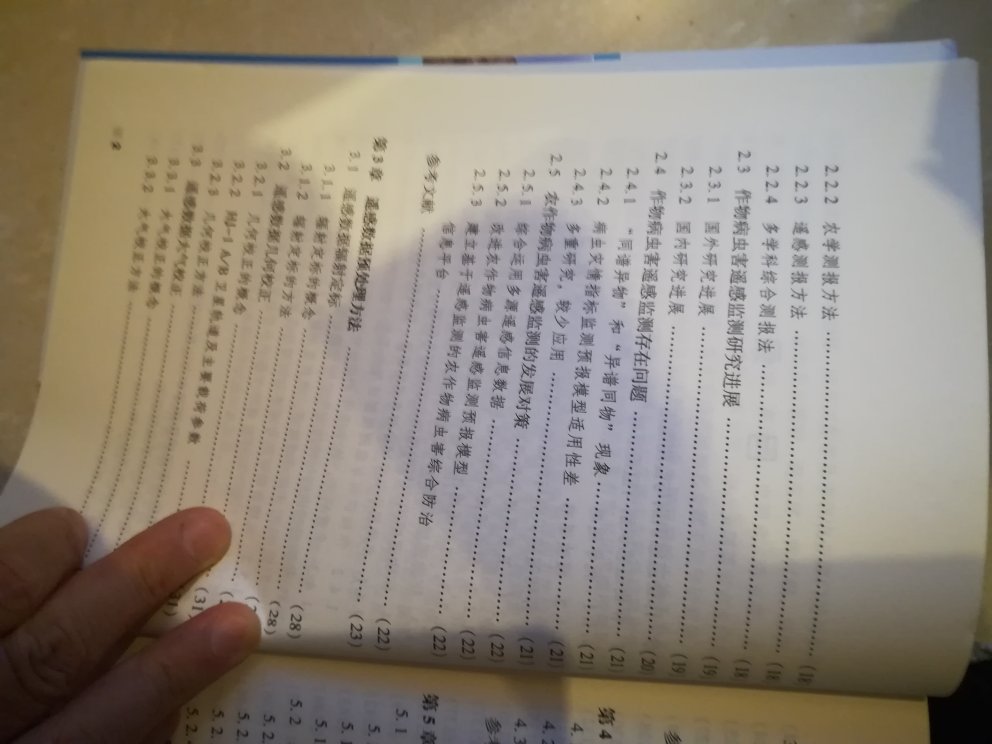 2.2.2 农学测报方法 ………… (18
2.2.3 遥感测报方法 ………… (18
2.2.4 多学科综合测报法 ………… (18
2.3 作物病虫害遥感监测研究进展 ………… (19
2.3.1 国外研究进展 ………… (19
2.3.2 国内研究进展 ………… (20
2.4 作物病虫害遥感监测存在问题 ………… (21
2.4.1 “同谱异物”和“异谱同物”现象 ………… (21
2.4.2 病虫灾情指标监测预报模型适用性差 ………… (21)
2.4.3 多重研究，较少应用 ………… (21)
2.5 农作物病虫害遥感监测的发展对策 ………… (22)
2.5.1 综合运用多源遥感信息数据 ………… (22)
2.5.2 改进农作物病虫害遥感监测预报模型 ………… (22)
2.5.3 建立基于遥感监测的农作物病虫害综合防治
信息平台 ………… (22)
参考文献 ………… (22)
第3章 遥感数据预处理方法 ………… (23)
3.1 遥感数据辐射定标
3.1.1 辐射定标的概念 ………… (28)
3.1.2 辐射定标的方法 ………… (28)
3.2 遥感数据几何校正
3.2.1 几何校正的概念
3.2.2 HJ-1 A/B卫星轨道及主要载荷参数
3.2.3 几何校正方法 ………… (31
3.3 遥感数据大气校正
3.3.1 大气校正的概念
3.3.2 大气校正方法
2
第4
4.
4.2
4.3
参考
第5章
5.1
5.
5.1
5.1
5.2
5.2.
5.2.
5.2.
5.2.